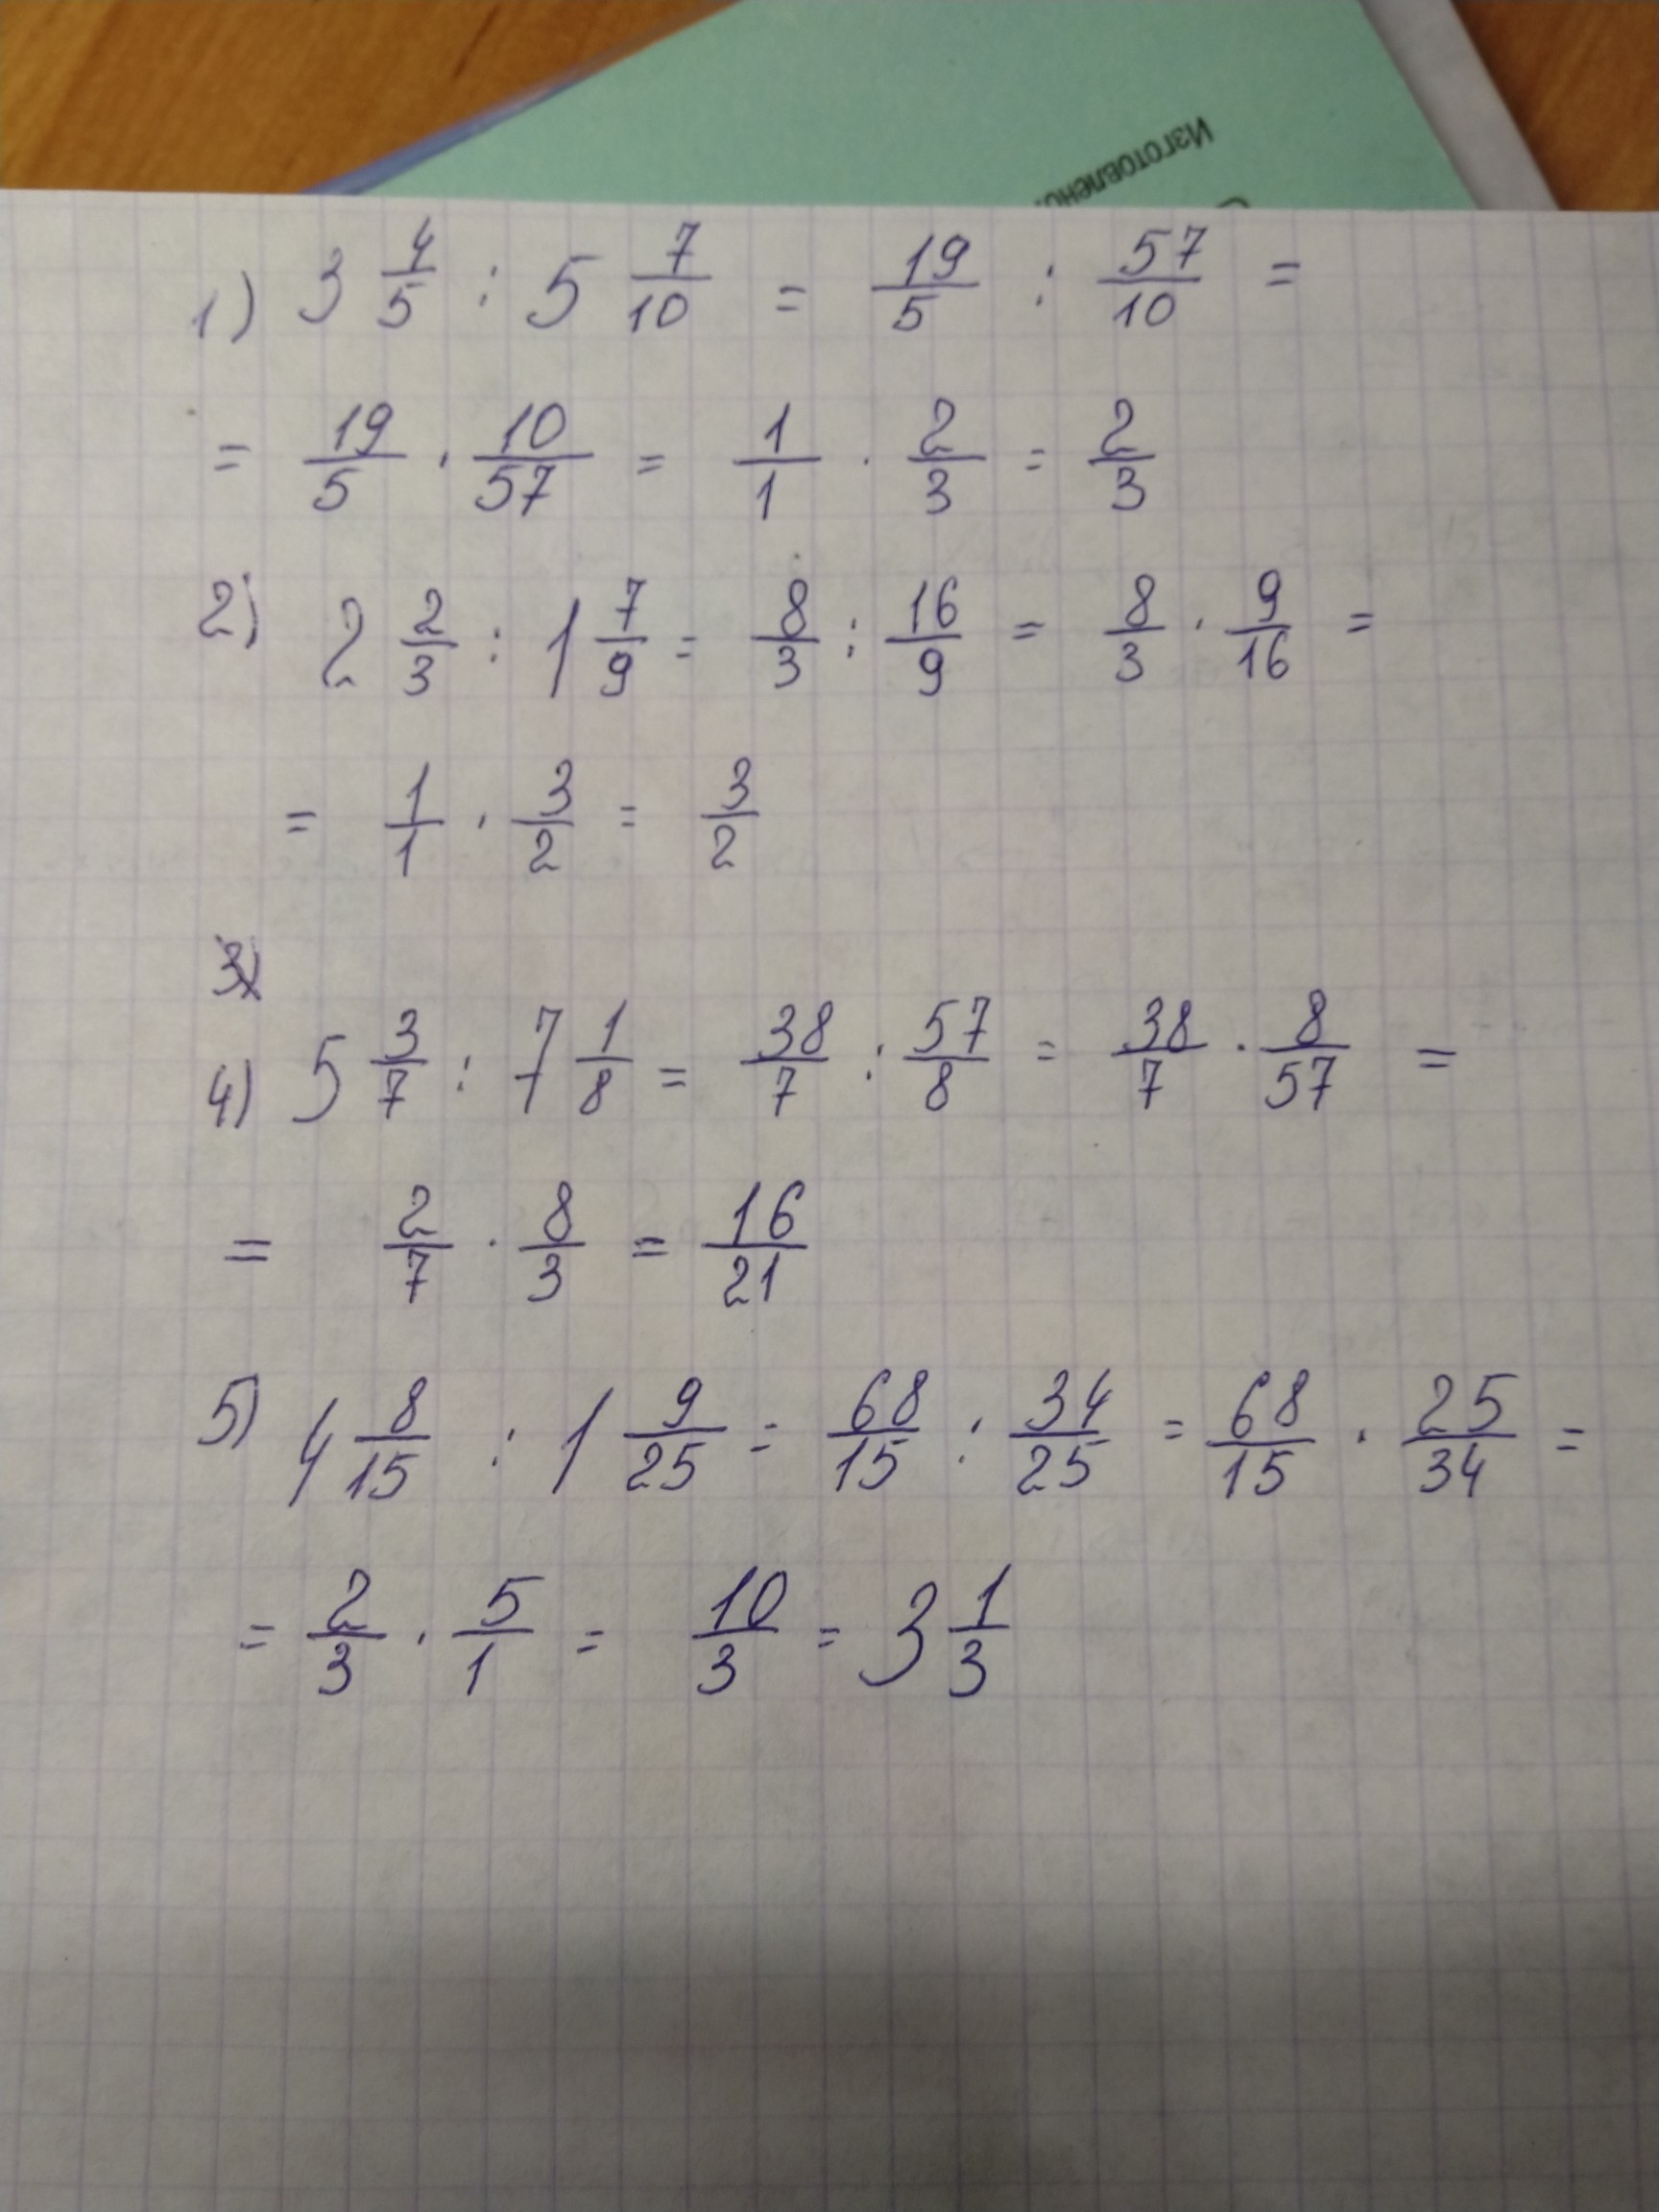 Изготовлено:
1) 3 4/5 : 5 7/10 = 19/5 : 57/10 =
= 19/5 · 10/57 = 1/1 · 2/3 = 2/3
2) 2 2/3 : 1 7/9 = 8/3 : 16/9 = 8/3 · 9/16 =
= 1/1 · 3/2 = 3/2
3)
4) 5 3/7 : 7 1/8 = 38/7 : 57/8 = 38/7 · 8/57 =
= 2/7 · 8/3 = 16/21
5) 4 8/15 : 1 9/25 = 68/15 : 34/25 = 68/15 · 25/34 =
= 2/3 · 5/1 = 10/3 = 3 1/3